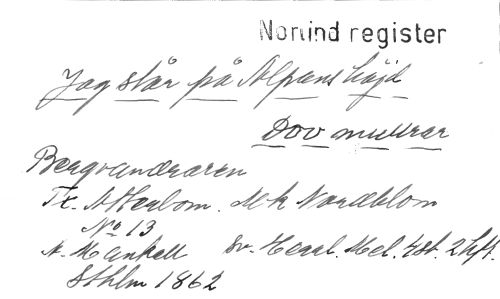 Norlind register
Jag står på Alpens höjd
Dov mullrar
Bergvandraren
Tx. Atterbom. Mk Nordblom
No 13
A. Mankell Sv. Harm. Mel. 4st. 2 hft.
Sthlm 1862